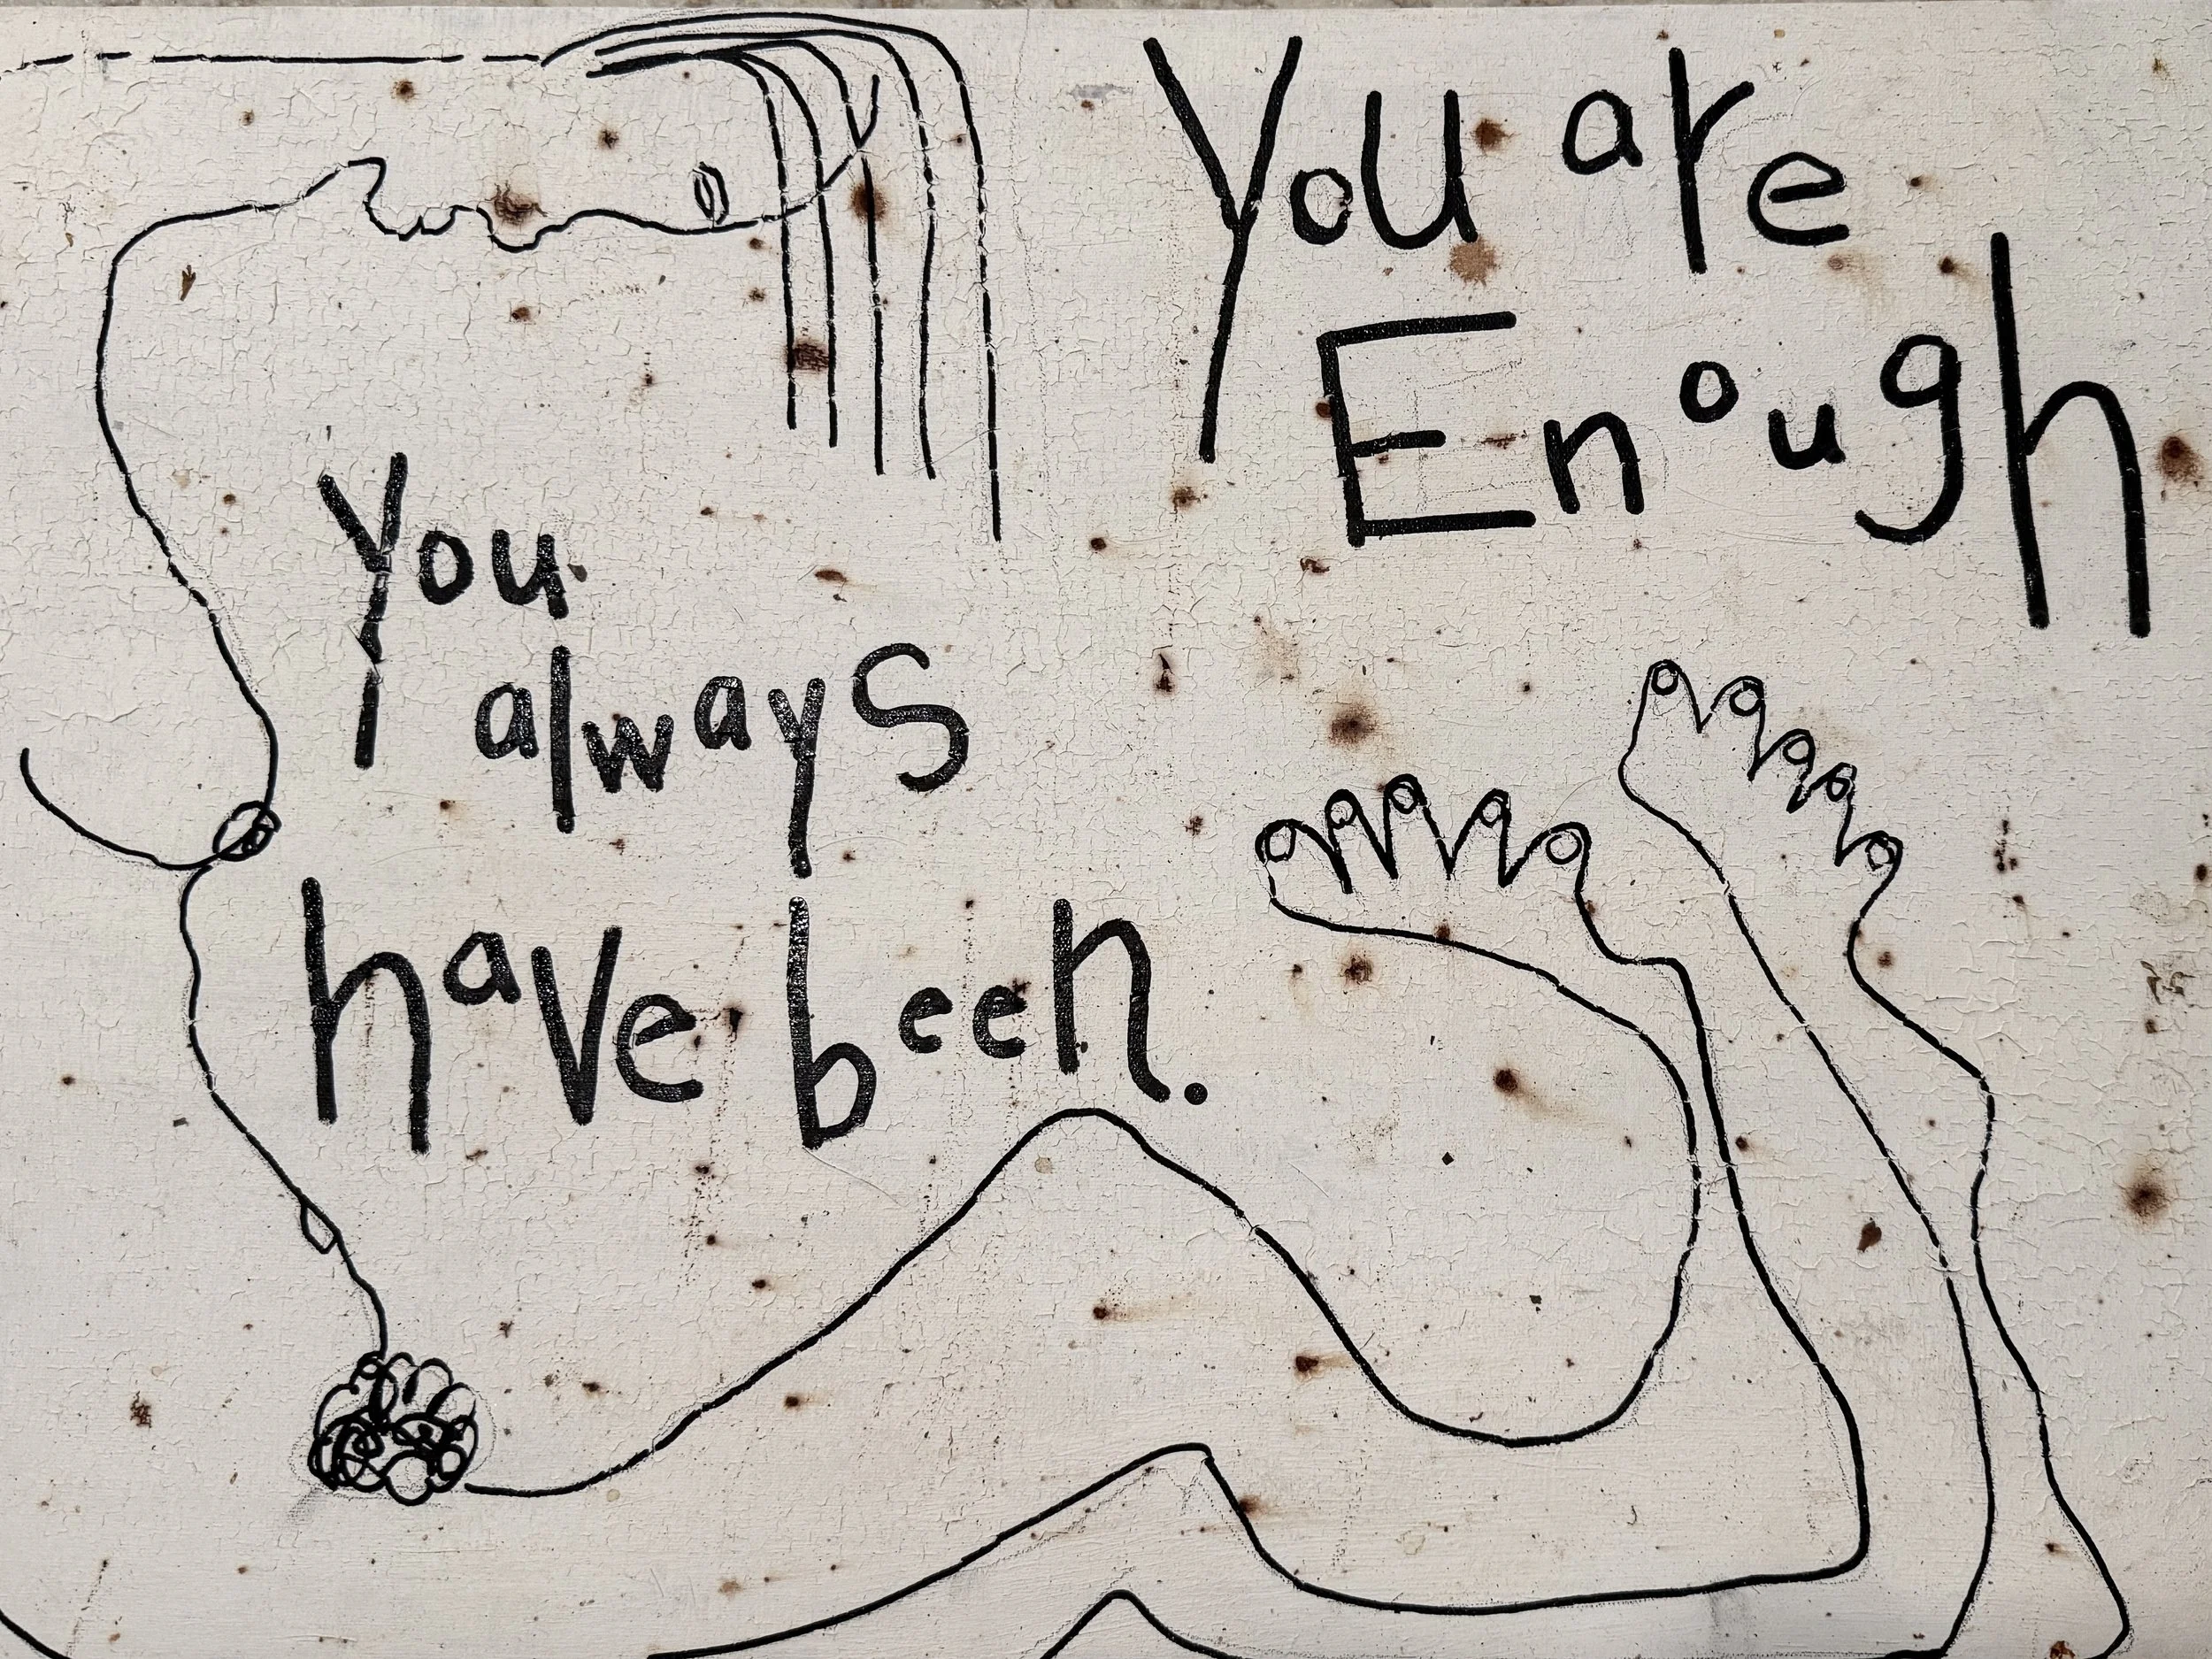 You are
Enough
You
always
have been.